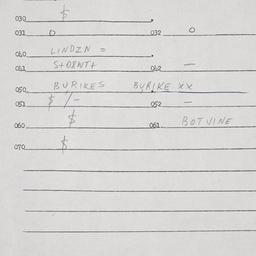 030 $
031 0 032 0
040 LINDZN =
041 042 —
050 BURIKES BURIKE XX
051 $ /- 052 —
060 $ 061 BOTVINE
070 $